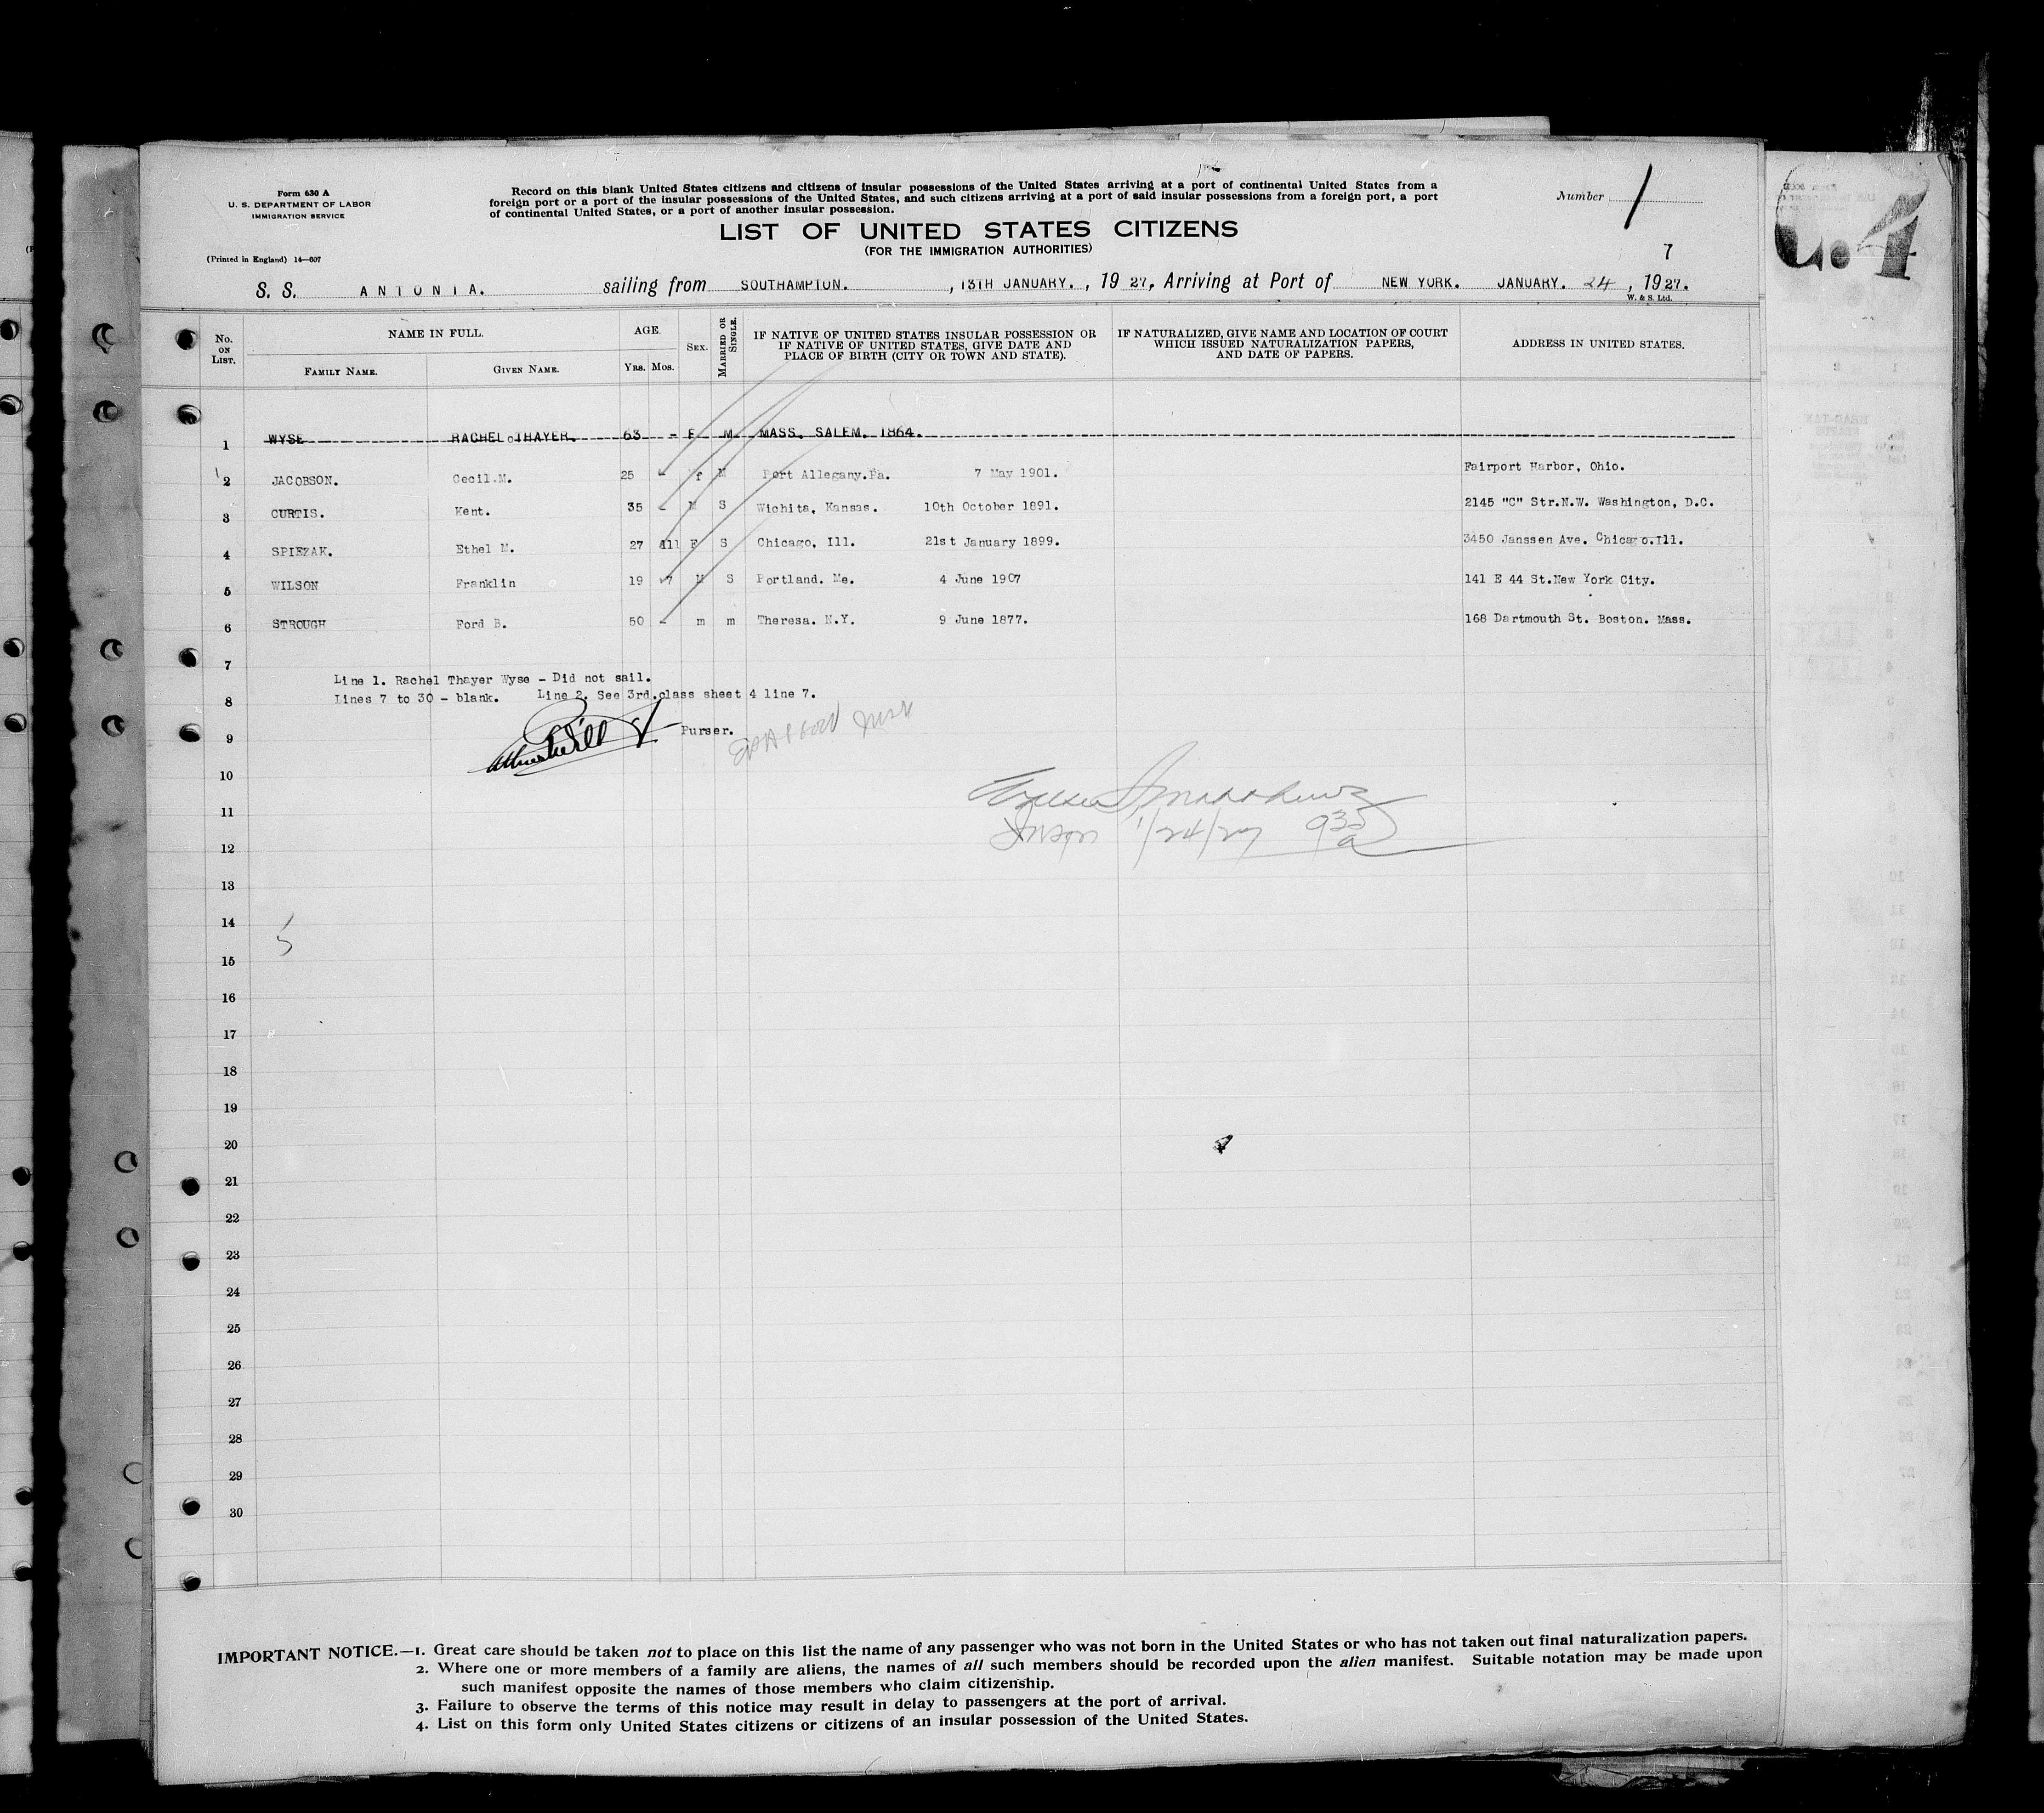 Form 630 A
U. S. DEPARTMENT OF LABOR
IMMIGRATION SERVICE
(Printed in England) 14—607
Record on this blank United States citizens and citizens of insular possessions of the United States arriving at a port of continental United States from a
foreign port or a port of the insular possessions of the United States, and such citizens arriving at a port of said insular possessions from a foreign port, a port
of continental United States, or a port of another insular possession.
Number 1
LIST OF UNITED STATES CITIZENS
(FOR THE IMMIGRATION AUTHORITIES)
7
S. S. ANTONIA. sailing from SOUTHAMPTON. , 13TH JANUARY. , 19 27, Arriving at Port of NEW YORK. JANUARY. 24 , 1927.
W. & S. Ltd.
No. ON LIST. NAME IN FULL. FAMILY NAME. GIVEN NAME. AGE. YRS. MOS. SEX. MARRIED OR SINGLE. IF NATIVE OF UNITED STATES INSULAR POSSESSION OR IF NATIVE OF UNITED STATES, GIVE DATE AND PLACE OF BIRTH (CITY OR TOWN AND STATE). IF NATURALIZED, GIVE NAME AND LOCATION OF COURT WHICH ISSUED NATURALIZATION PAPERS, AND DATE OF PAPERS. ADDRESS IN UNITED STATES.
1 WYSE RACHEL THAYER. 63 - F M MASS. SALEM. 1864.
2 JACOBSON. Cecil.M. 25 - f M Port Allegany.Pa. 7 May 1901. Fairport Harbor, Ohio.
3 CURTIS. Kent. 35 - M S Wichita, Kansas. 10th October 1891. 2145 "C" Str.N.W. Washington, D.C.
4 SPIEZAK. Ethel M. 27 11 F S Chicago, Ill. 21st January 1899. 3450 Janssen Ave. Chicago.Ill.
5 WILSON Franklin 19 7 M S Portland. Me. 4 June 1907 141 E 44 St.New York City.
6 STROUGH Ford B. 50 - m m Theresa. N.Y. 9 June 1877. 168 Dartmouth St. Boston. Mass.
7
Line 1. Rachel Thayer Wyse - Did not sail.
8 Lines 7 to 30 - blank. Line 2. See 3rd.class sheet 4 line 7.
9 Purser.
10
11
Insp 1/24/27 935 a
12
13
14
5
15
16
17
18
19
20
21
22
23
24
25
26
27
28
29
30
IMPORTANT NOTICE.—1. Great care should be taken not to place on this list the name of any passenger who was not born in the United States or who has not taken out final naturalization papers.
2. Where one or more members of a family are aliens, the names of all such members should be recorded upon the alien manifest. Suitable notation may be made upon
such manifest opposite the names of those members who claim citizenship.
3. Failure to observe the terms of this notice may result in delay to passengers at the port of arrival.
4. List on this form only United States citizens or citizens of an insular possession of the United States.